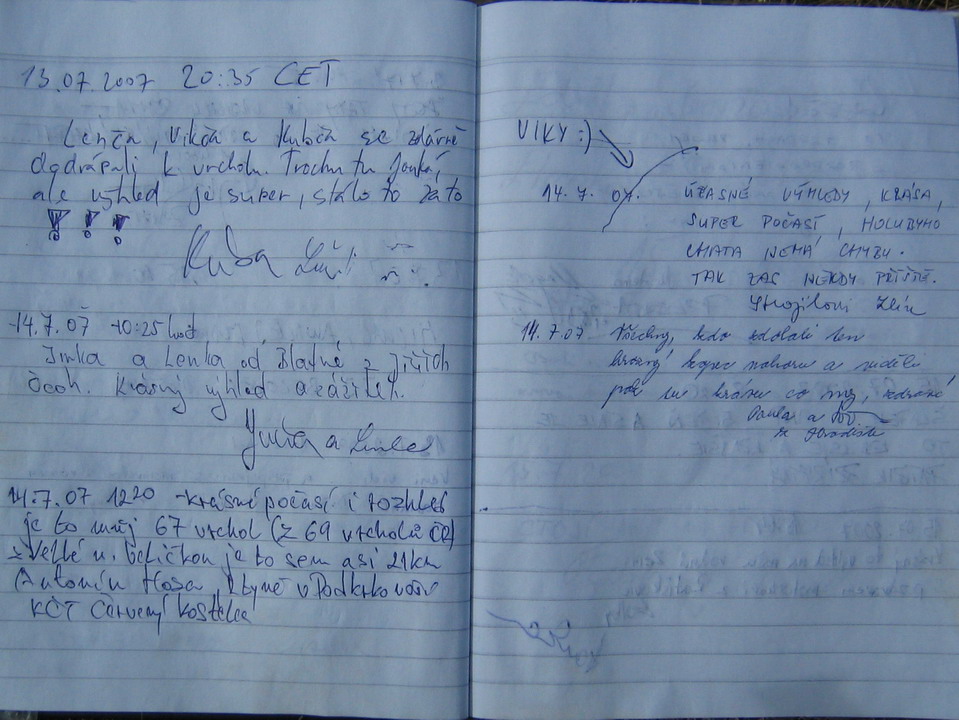 13.07.2007 20:35 CET
Lenča, Vikča a Kubča se zdárně
dodrápali k vrcholu. Trochu tu fouká,
ale výhled je super, stálo to za to
!!!
Kuba
14.7.07 10:25 hod
Jirka a Lenka od Blatné z Jižních
Čech. Krásný výhled a zážitek.
Jirka a Lenka
14.7.07 1220 - krásné počasí i rozhled
je to můj 67 vrchol (z 69 vrcholů ČR)
z Velké n. Veličkou je to sem asi 21km
Antonín Hosa v Podkrkonoší
KČT Červený Kostelec
VIKY :)
14.7.07. ÚŽASNÉ VÝHLEDY, KRÁSA,
SUPER POČASÍ, HOLUBYHO
CHATA NEMÁ CHYBU.
TAK ZAS NĚKDY PŘÍŠTĚ.
Strojilovi Zlín
14.7.07 Všechny, kdo zdolali ten
hrozný kopec nahoru a viděli
pak tu krásu co my, zdraví
Pavla a
z Hradiště